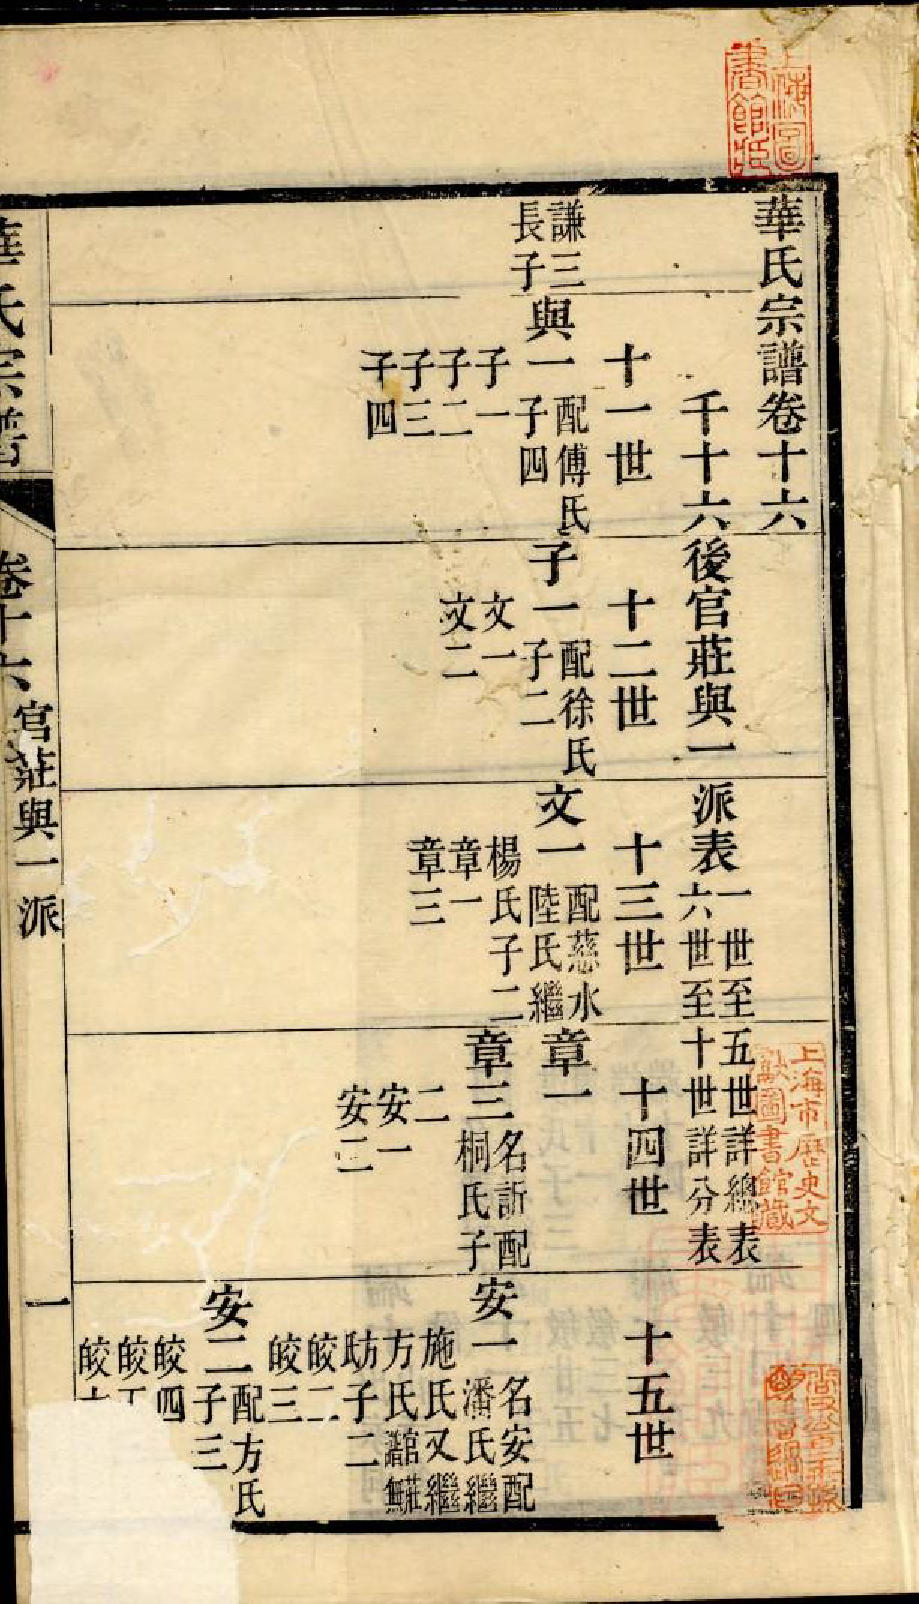 華氏宗譜卷十六
千十六後官莊與一派表 一世至五世詳總表
六世至十世詳分表
十一世
十二世
十三世
十四世
十五世
謙三
長子
與一 配傅氏
子四
子一
子二
子三
子四
子一 配徐氏
子二
文一
文二
文一 配慈水
陸氏繼
楊氏子二
章一
章三
章一
章三 名訢配
桐氏子
二
安一
安二
安一 名安配
潘氏繼
施氏又繼
方氏
子二
皎二
皎三
安二 配方氏
子三
皎四
皎
皎
華氏宗譜
卷十六
官莊與一派
一
上海圖
書館藏
上海市歷史文
獻圖書館藏